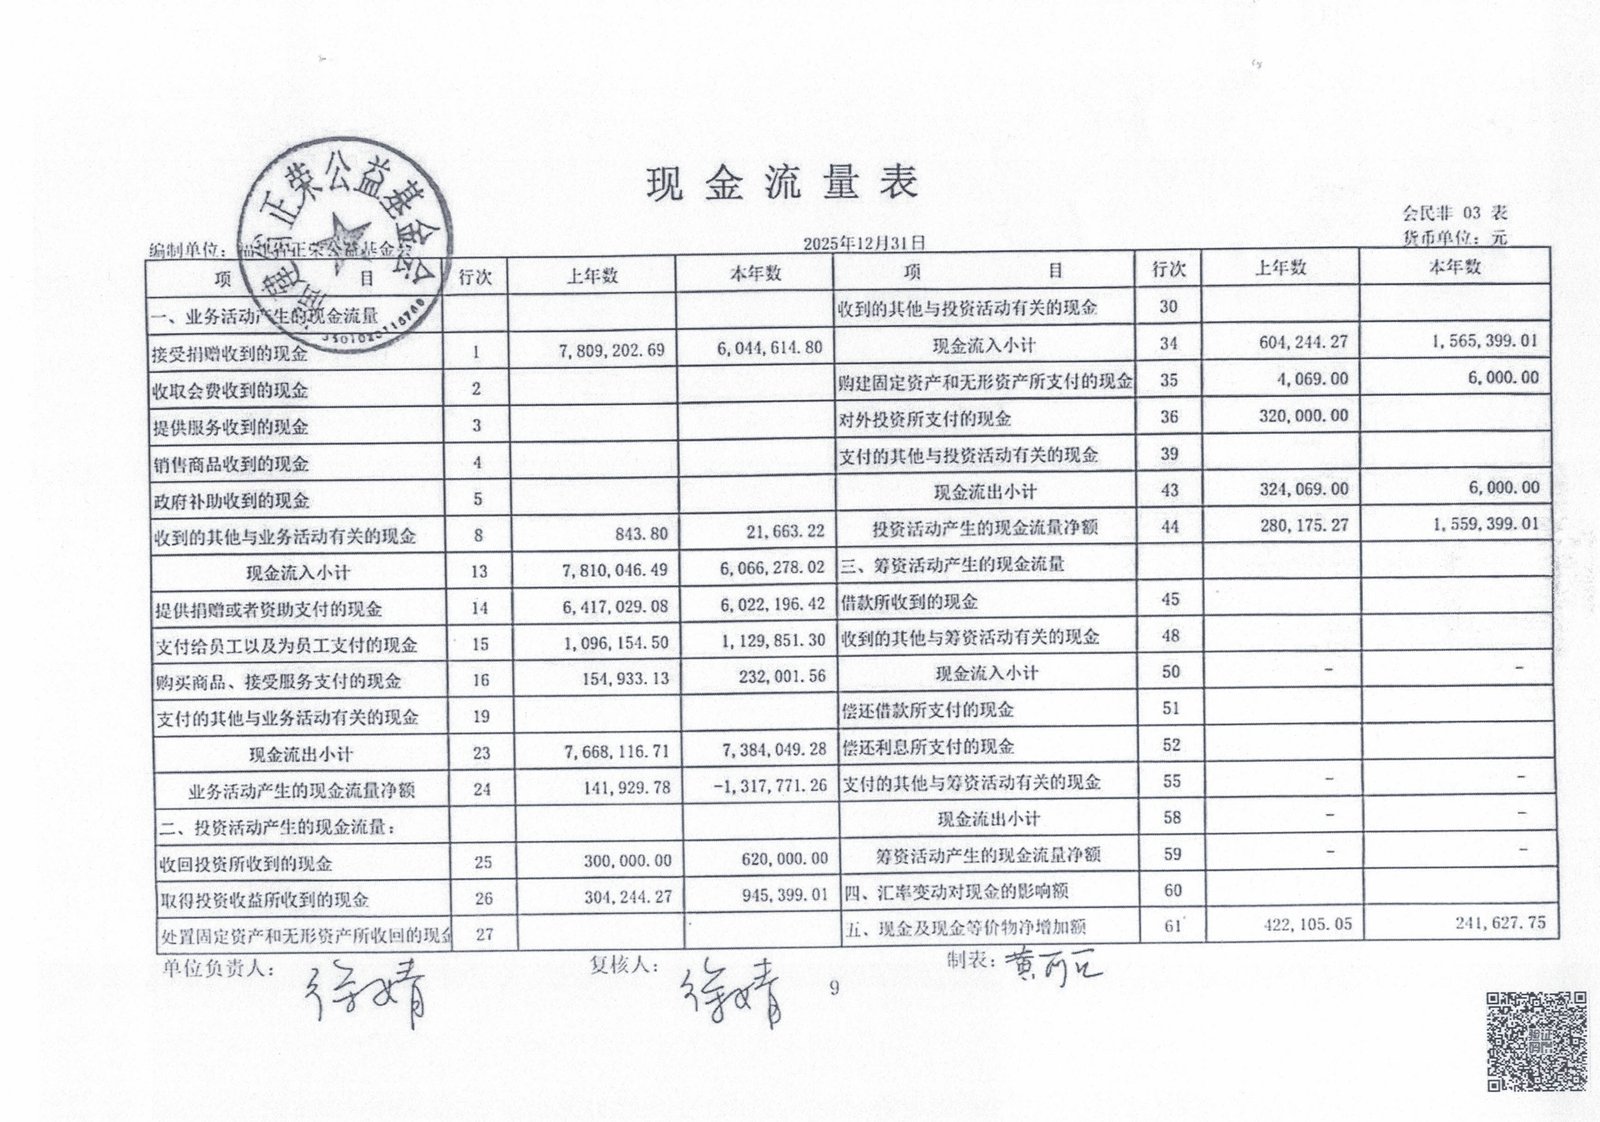 现金流量表
会民非 03 表
编制单位：福建省正荣公益基金会 2025年12月31日 货币单位：元
项 目 行次 上年数 本年数 项 目 行次 上年数 本年数
一、业务活动产生的现金流量 收到的其他与投资活动有关的现金 30
接受捐赠收到的现金 1 7,809,202.69 6,044,614.80 现金流入小计 34 604,244.27 1,565,399.01
收取会费收到的现金 2 购建固定资产和无形资产所支付的现金 35 4,069.00 6,000.00
提供服务收到的现金 3 对外投资所支付的现金 36 320,000.00
销售商品收到的现金 4 支付的其他与投资活动有关的现金 39
政府补助收到的现金 5 现金流出小计 43 324,069.00 6,000.00
收到的其他与业务活动有关的现金 8 843.80 21,663.22 投资活动产生的现金流量净额 44 280,175.27 1,559,399.01
现金流入小计 13 7,810,046.49 6,066,278.02 三、筹资活动产生的现金流量
提供捐赠或者资助支付的现金 14 6,417,029.08 6,022,196.42 借款所收到的现金 45
支付给员工以及为员工支付的现金 15 1,096,154.50 1,129,851.30 收到的其他与筹资活动有关的现金 48
购买商品、接受服务支付的现金 16 154,933.13 232,001.56 现金流入小计 50 - -
支付的其他与业务活动有关的现金 19 偿还借款所支付的现金 51
现金流出小计 23 7,668,116.71 7,384,049.28 偿还利息所支付的现金 52
业务活动产生的现金流量净额 24 141,929.78 -1,317,771.26 支付的其他与筹资活动有关的现金 55 - -
二、投资活动产生的现金流量： 现金流出小计 58 - -
收回投资所收到的现金 25 300,000.00 620,000.00 筹资活动产生的现金流量净额 59 - -
取得投资收益所收到的现金 26 304,244.27 945,399.01 四、汇率变动对现金的影响额 60
处置固定资产和无形资产所收回的现金 27 五、现金及现金等价物净增加额 61 422,105.05 241,627.75
单位负责人： 徐婧 复核人： 徐婧 制表：
9
福建省正荣公益基金会
验证